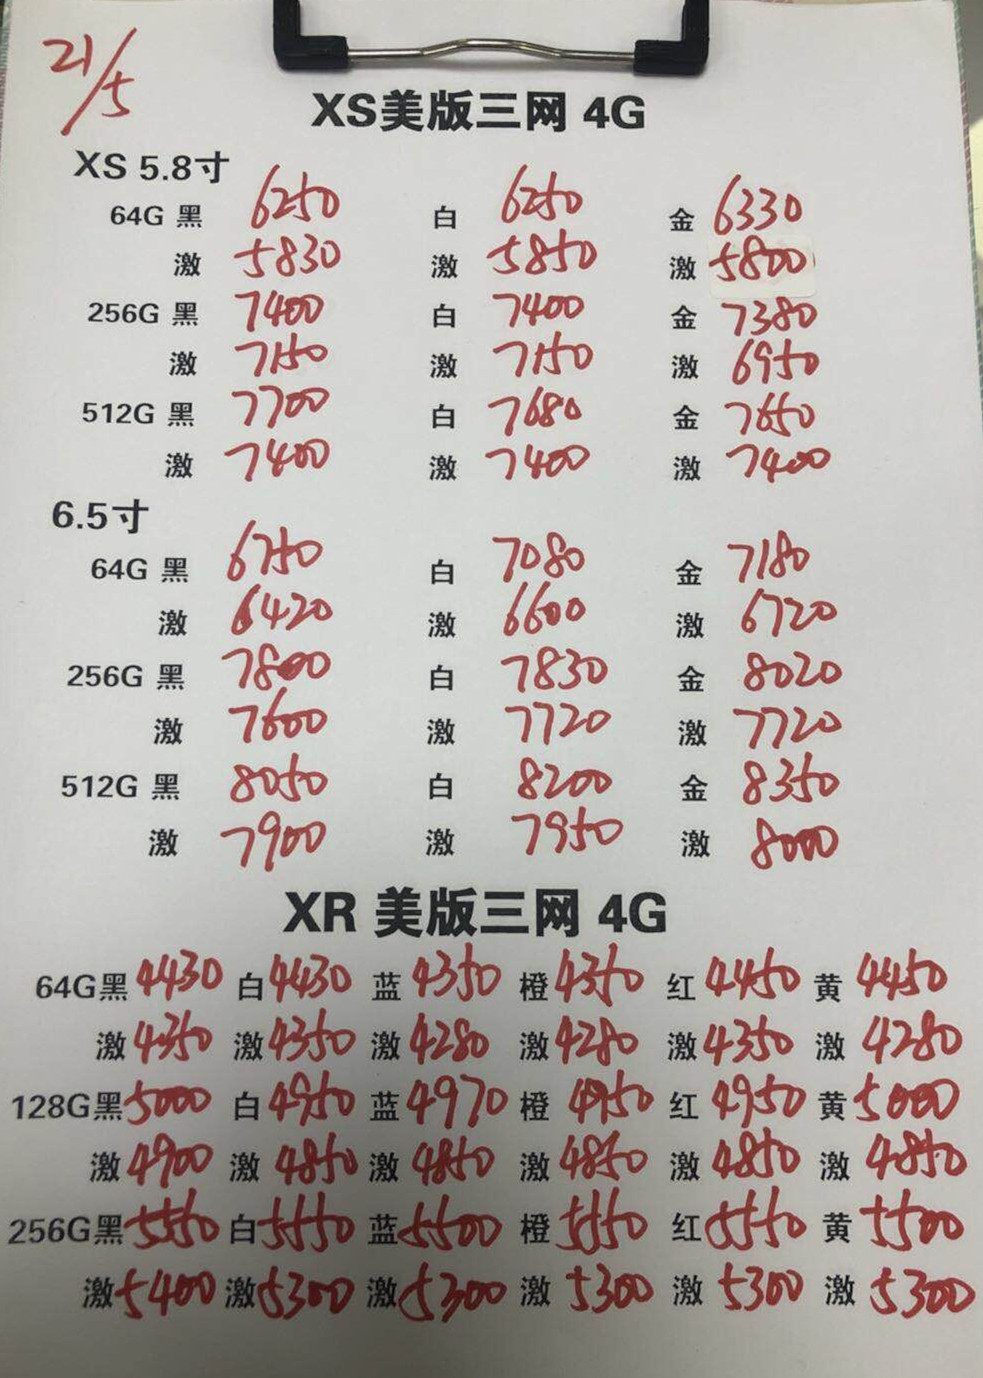 21/5
XS美版三网 4G
XS 5.8寸
64G 黑 6250 白 6250 金 6330
激 5830 激 5850 激 5800
256G 黑 7400 白 7400 金 7380
激 7150 激 7150 激 6950
512G 黑 7700 白 7680 金 7650
激 7400 激 7400 激 7400
6.5寸
64G 黑 6750 白 7080 金 7180
激 6420 激 6600 激 6720
256G 黑 7800 白 7830 金 8020
激 7600 激 7720 激 7720
512G 黑 8050 白 8200 金 8350
激 7900 激 7950 激 8000
XR 美版三网 4G
64G黑 4430 白 4430 蓝 4350 橙 4350 红 4450 黄 4450
激 4350 激 4350 激 4280 激 4280 激 4350 激 4280
128G黑 5000 白 4950 蓝 4970 橙 4950 红 4950 黄 5000
激 4900 激 4850 激 4850 激 4850 激 4850 激 4850
256G黑 5550 白 5550 蓝 5500 橙 5550 红 5550 黄 5500
激 5400 激 5300 激 5300 激 5300 激 5300 激 5300